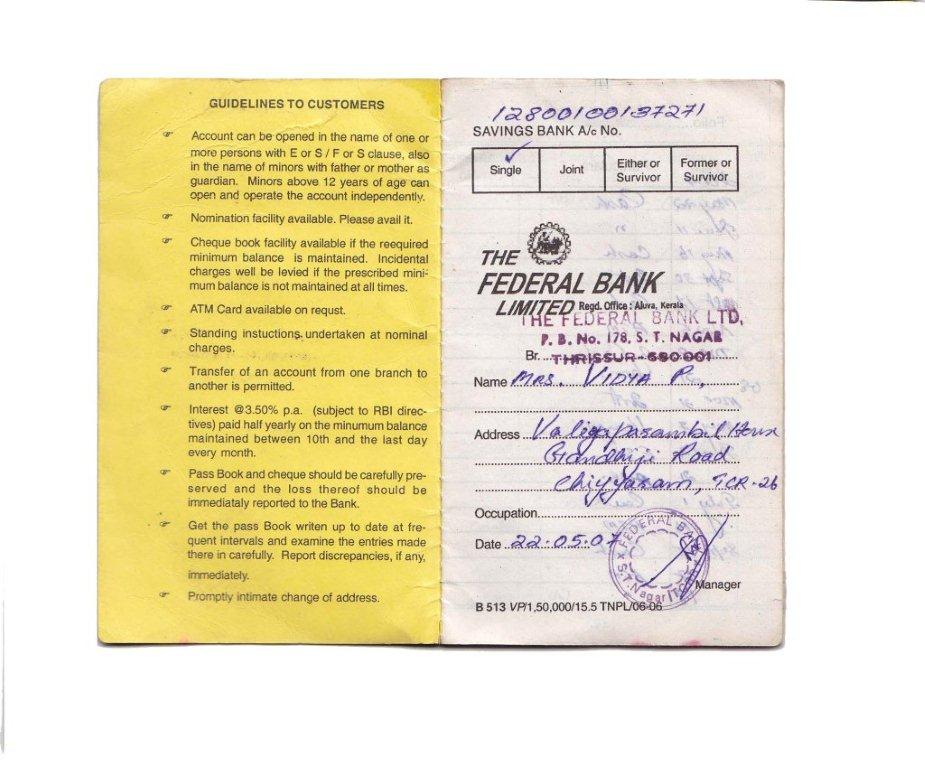 GUIDELINES TO CUSTOMERS
Account can be opened in the name of one or
more persons with E or S / F or S clause, also
in the name of minors with father or mother as
guardian. Minors above 12 years of age can
open and operate the account independently.
Nomination facility available. Please avail it.
Cheque book facility available if the reequired
minimum balance is maintained. Incidental
charges well be levied if the prescribed mini-
mum balance is not maintained at all times.
ATM Card available on requst.
Standing instuctions undertaken at nominal
charges.
Transfer of an account from one branch to
another is permitted.
Interest @3.50% p.a. (subject to RBI direc-
tives) paid half yearly on the minumum balance
maintained between 10th and the last day
every month.
Pass Book and cheque should be carefully pre-
served and the loss thereof should be
immediataly reported to the Bank.
Get the pass Book writen up to date at fre-
quent intervals and examine the entries made
there in carefully. Report discrepancies, if any,
immediately.
Promptly intimate change of address.
12800100137271
SAVINGS BANK A/c No.
Single Joint Either or Survivor Former or Survivor
THE
FEDERAL BANK
LIMITED Regd. Office : Aluva, Kerala
THE FEDERAL BANK LTD,
P. B. No. 178, S. T. NAGAR
Br. THRISSUR-680 001
Name Mrs. VIDYA P.,
Address House
Gandhiji Road
Chiyyaram, TCR-26
Occupation
Date 22.05.07
FEDERAL BANK
S.T. Nagar
Manager
B 513 VP/1,50,000/15.5 TNPL/06-06